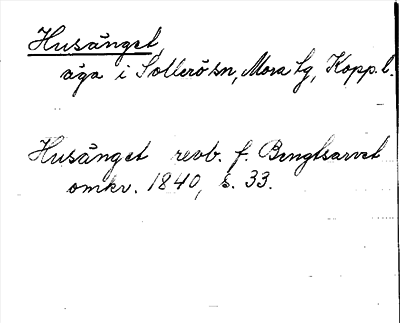 Husänget,
äga i Sollerö sn, Mora tg, Kopp. l.
Husänget revb. f. Bengtsarvet
omkr. 1840, s. 33.